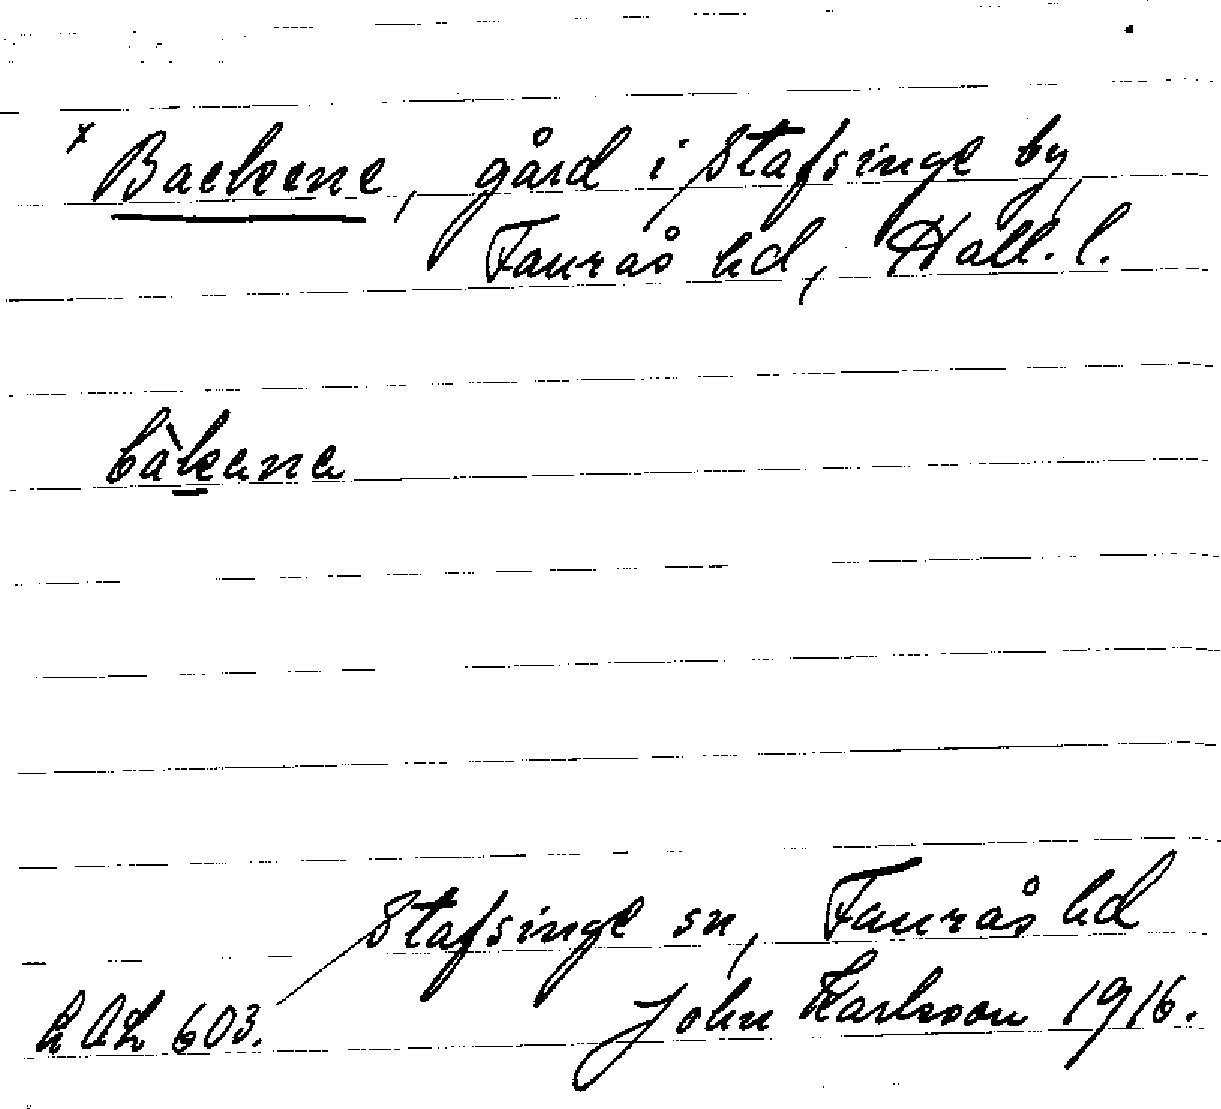 x Backene, gård i Stafsinge by,
Faurås hd, Hall. l.
bàkana
Stafsinge sn, Faurås hd
LAL 603. John Karlsson 1916.